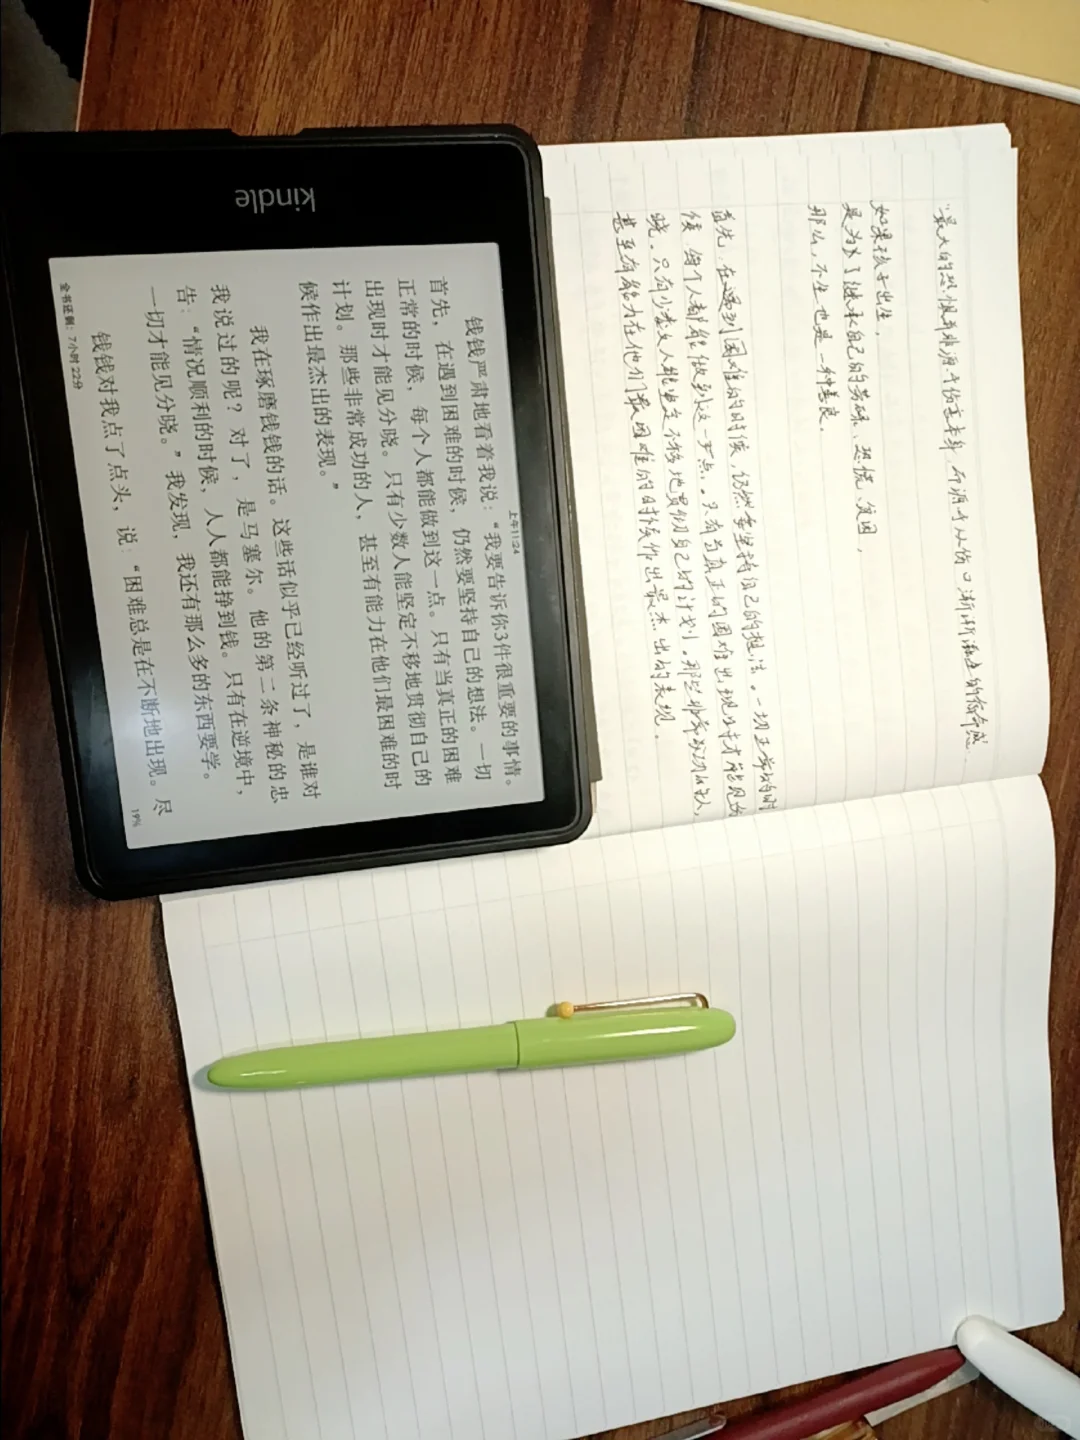 kindle
上午11:24
钱钱严肃地看着我说：“我要告诉你3件很重要的事情。
首先，在遇到困难的时候，仍然要坚持自己的想法。一切
正常的时候，每个人都能做到这一点。只有当真正的困难
出现时才能见分晓。只有少数人能坚定不移地贯彻自己的
计划。那些非常成功的人，甚至有能力在他们最困难的时
候作出最杰出的表现。”
我在琢磨钱钱的话。这些话似乎已经听过了，是谁对
我说过的呢？对了，是马塞尔。他的第二条神秘的忠
告：“情况顺利的时候，人人都能挣到钱。只有在逆境中，
一切才能见分晓。”我发现，我还有那么多的东西要学。
钱钱对我点了点头，说：“困难总是在不断地出现。尽
全书还剩：7小时22分
19%
“最大的恐惧并非源于伤害本身，而源于从伤口渐渐
如果孩子出生，
是为了继承自己的劳碌、恐慌、贫困，
那么，不生也是一种善良。
首先，在遇到困难的时候，仍然要坚持自己的想法。一切正常的时
候，每个人都能做到这一点。只有当真正的困难出现时才能见分
晓。只有少数人能坚定不移地贯彻自己的计划。那些非常成功的人，
甚至有能力在他们最困难的时候作出最杰出的表现。